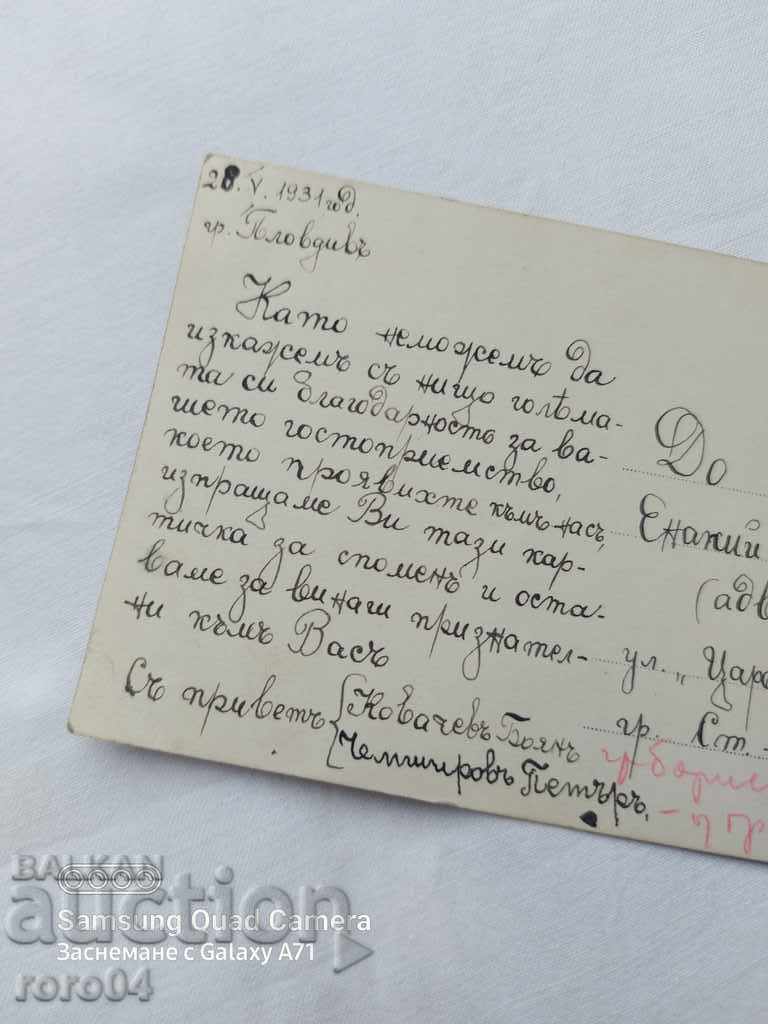 28. V. 1931 год.
гр. Пловдивъ
Като неможемъ да
изкажемъ съ нищо голѣма-
та си благодарность за ва-
шето гостоприемство,
което проявихте къмъ насъ,
изпращаме Ви тази кар-
тичка за споменъ и оста-
ваме за винаги признател-
ни къмъ Васъ
Съ приветъ
Ковачевъ Боянъ
Петъръ.
До
Енакий
(адв
ул. „Царе
гр. Ст.
BALKAN
auction
roro04
Samsung Quad Camera
Заснемане с Galaxy A71